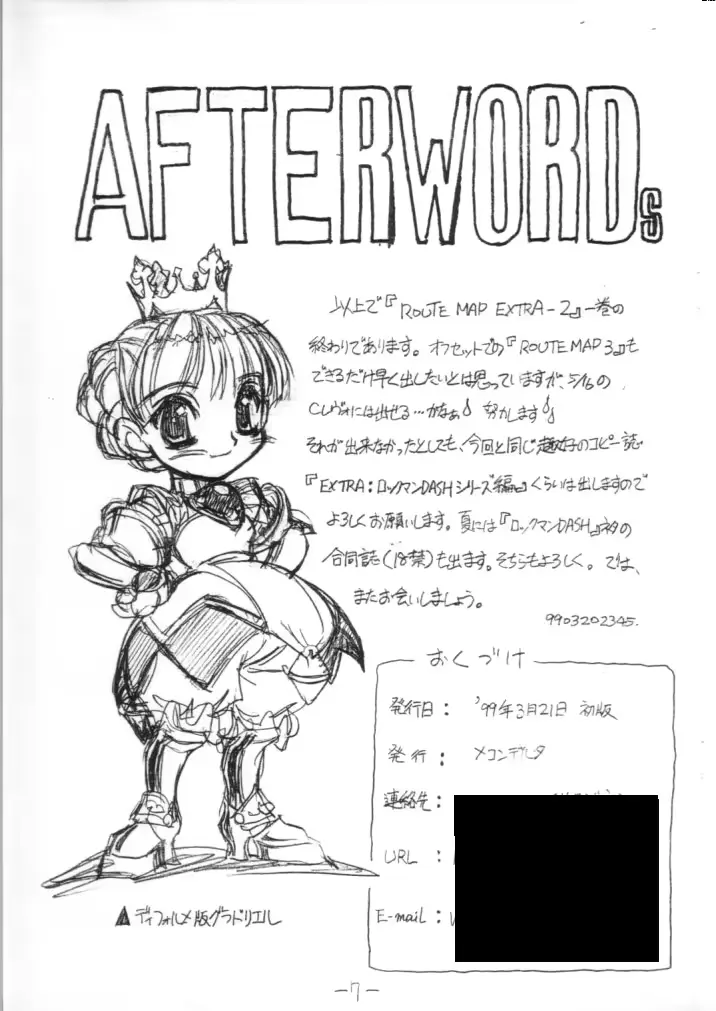 AFTERWORDs
以上で『ROUTE MAP EXTRA-2』一巻の
終わりであります。オフセットでの『ROUTE MAP 3』も
できるだけ早く出したいとは思っていますが、5/16の
Cレヴォには出せる…かなぁ 努力します
それが出来なかったとしても、今回と同じ趣好のコピー誌
『EXTRA:ロックマンDASHシリーズ編』くらいは出しますので
よろしくお願いします。夏には『ロックマンDASH』ネタの
合同誌(18禁)も出ます。そちらもよろしく。では、
またお会いしましょう。
9903202345.
おくづけ
発行日: '99年3月21日 初版
発行: メコンデルタ
連絡先:
URL:
E-mail:
▲ディフォルメ版グラドリエル
-7-